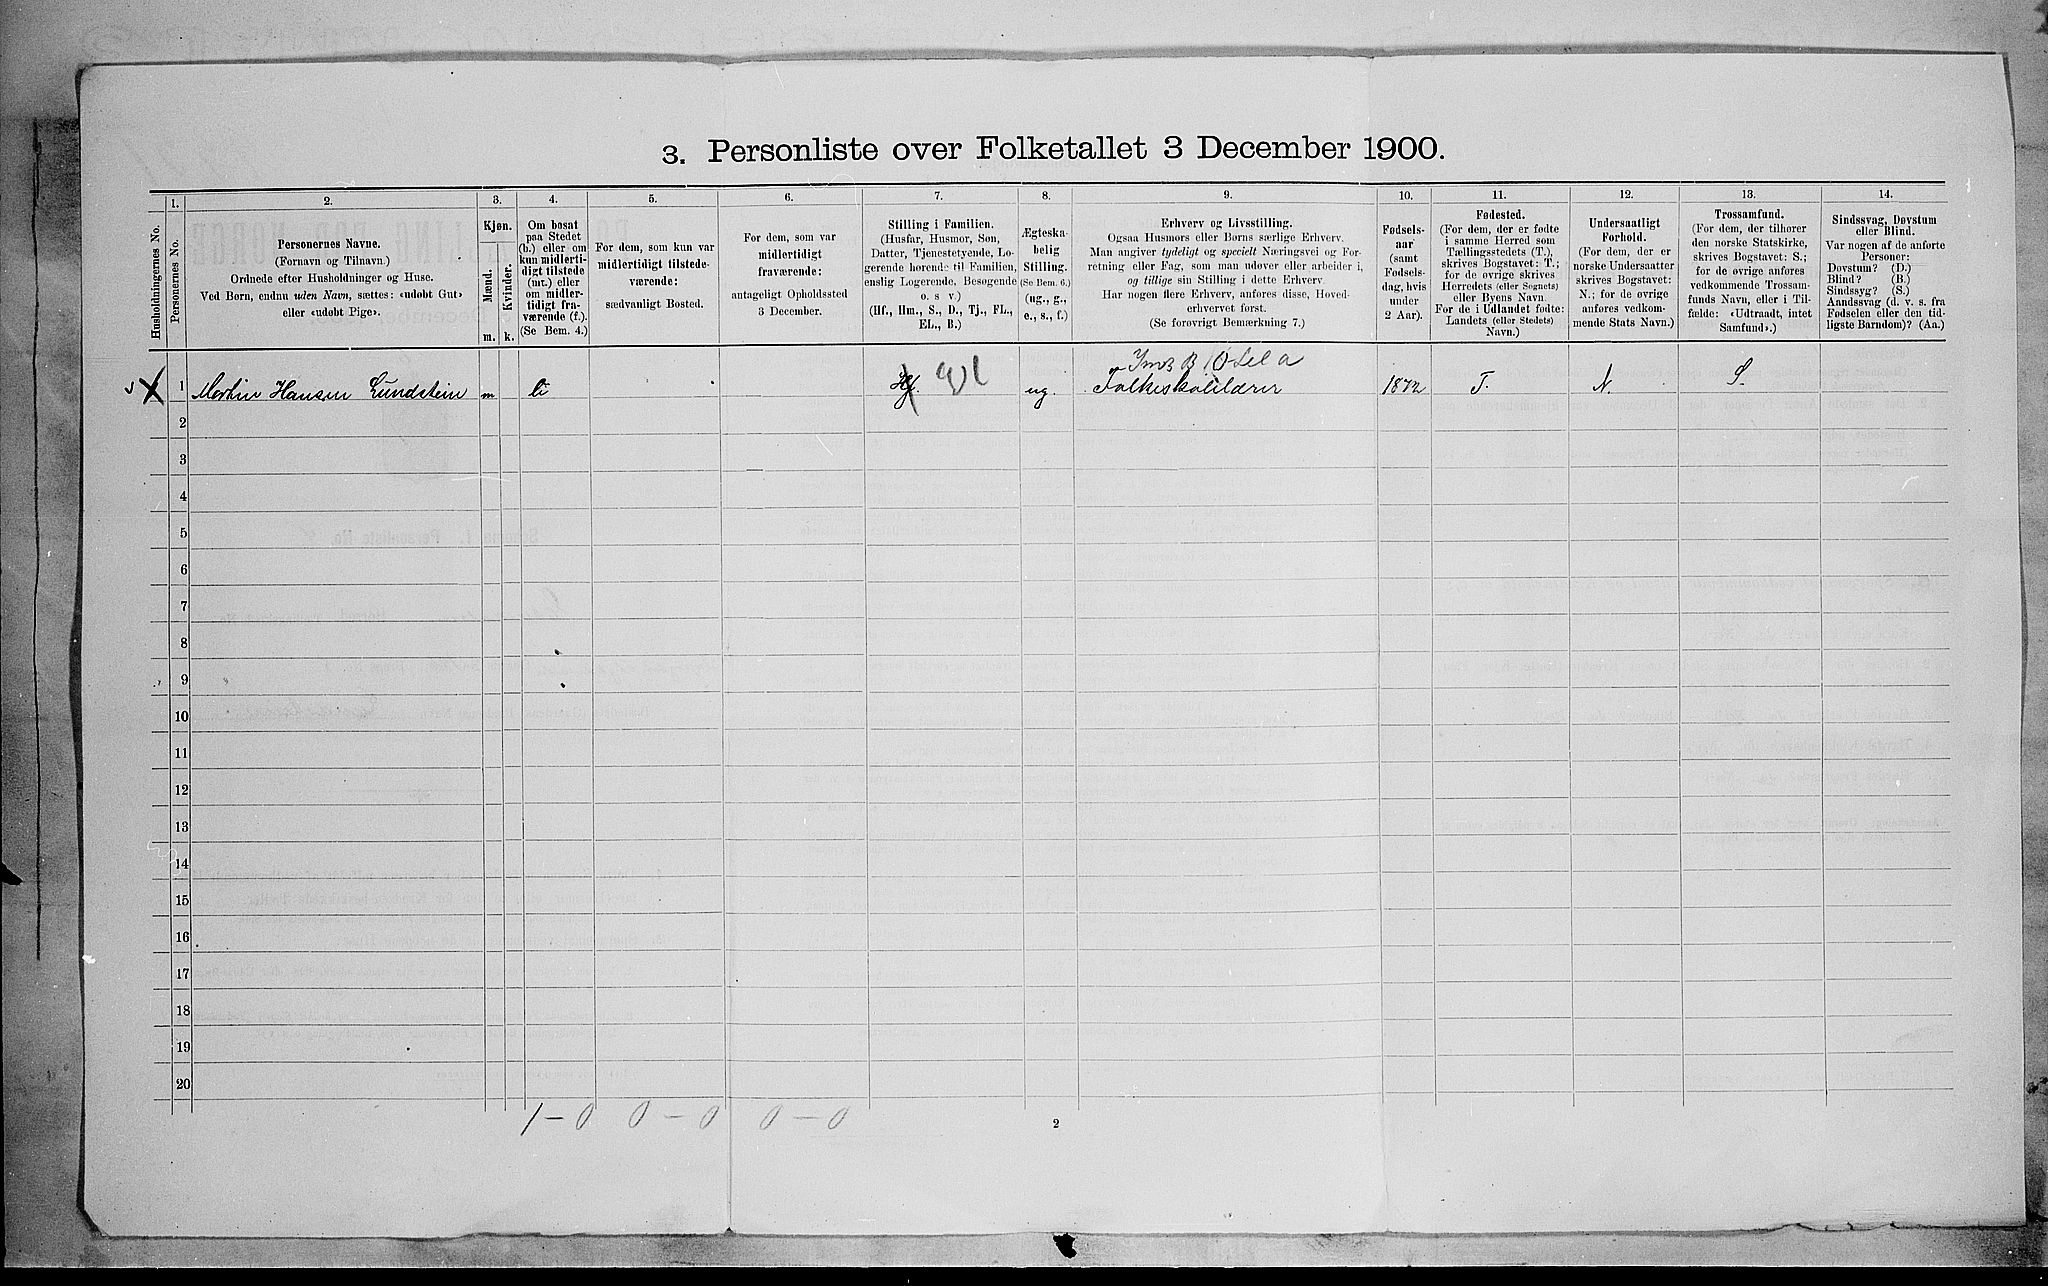 3. Personliste over Folketallet 3 December 1900.
Husholdningernes No.
1.
Personernes No.
2.
Personernes Navne.
(Fornavn og Tilnavn.)
Ordnede efter Husholdninger og Huse.
Ved Børn, endnu uden Navn, sættes: «udøbt Gut»
eller «udøbt Pige».
3.
Kjøn.
Mænd.
Kvinder.
m.
k.
4.
Om bosat
paa Stedet
(b.) eller om
kun midlerti-
digt tilstede
(mt.) eller
om midler-
tidigt fra-
værende (f.).
(Se Bem. 4.)
5.
For dem, som kun var
midlertidigt tilstede-
værende:
sædvanligt Bosted.
6.
For dem, som var
midlertidigt
fraværende:
antageligt Opholdssted
3 December.
7.
Stilling i Familien.
(Husfar, Husmor, Søn,
Datter, Tjenestetyende, Lo-
gerende hørende til Familien,
enslig Logerende, Besøgende
o. s v.)
(Hf., Hm., S., D., Tj., FL.,
EL., B.)
8.
Ægteska-
belig
Stilling.
(Se Bem. 6.)
(ug., g.,
e., s., f.)
9.
Erhverv og Livsstilling.
Ogsaa Husmors eller Børns særlige Erhverv.
Man angiver tydeligt og specielt Næringsvei og For-
retning eller Fag, som man udøver eller arbeider i,
og tillige sin Stilling i dette Erhverv.
Har nogen flere Erhverv, anføres disse, Hoved-
erhvervet først.
(Se forøvrigt Bemærkning 7.)
10.
Fødsels-
aar
(samt
Fødsels-
dag, hvis
under
2 Aar).
11.
Fødested.
(For dem, der er fødte
i samme Herred som
Tællingsstedets (T.),
skrives Bogstavet: T.;
for de øvrige skrives
Herredets (eller Sognets)
eller Byens Navn.
For de i Udlandet fødte:
Landets (eller Stedets)
Navn.)
12.
Undersaatligt
Forhold.
(For dem, der er
norske Undersaatter
skrives Bogstavet:
N.; for de øvrige
anføres vedkom-
mende Stats Navn.)
13.
Trossamfund.
(For dem, der tilhører
den norske Statskirke,
skrives Bogstavet: S.;
for de øvrige anføres
vedkommende Trossam-
funds Navn, eller i Til-
fælde: «Udtraadt, intet
Samfund».)
14.
Sindssvag, Døvstum
eller Blind.
Var nogen af de anførte
Personer:
Døvstum? (D.)
Blind? (B.)
Sindssyg? (S.)
Aandssvag (d. v. s. fra
Fødselen eller den tid-
ligste Barndom)? (Aa.)
1 Martin Hansen Lundstein m b Hf. El ug. Folkeskolelærer 1872 T. N. S.
2
3
4
5
6
7
8
9
10
11
12
13
14
15
16
17
18
19
20
1 – 0 0 – 0 0 – 0
2